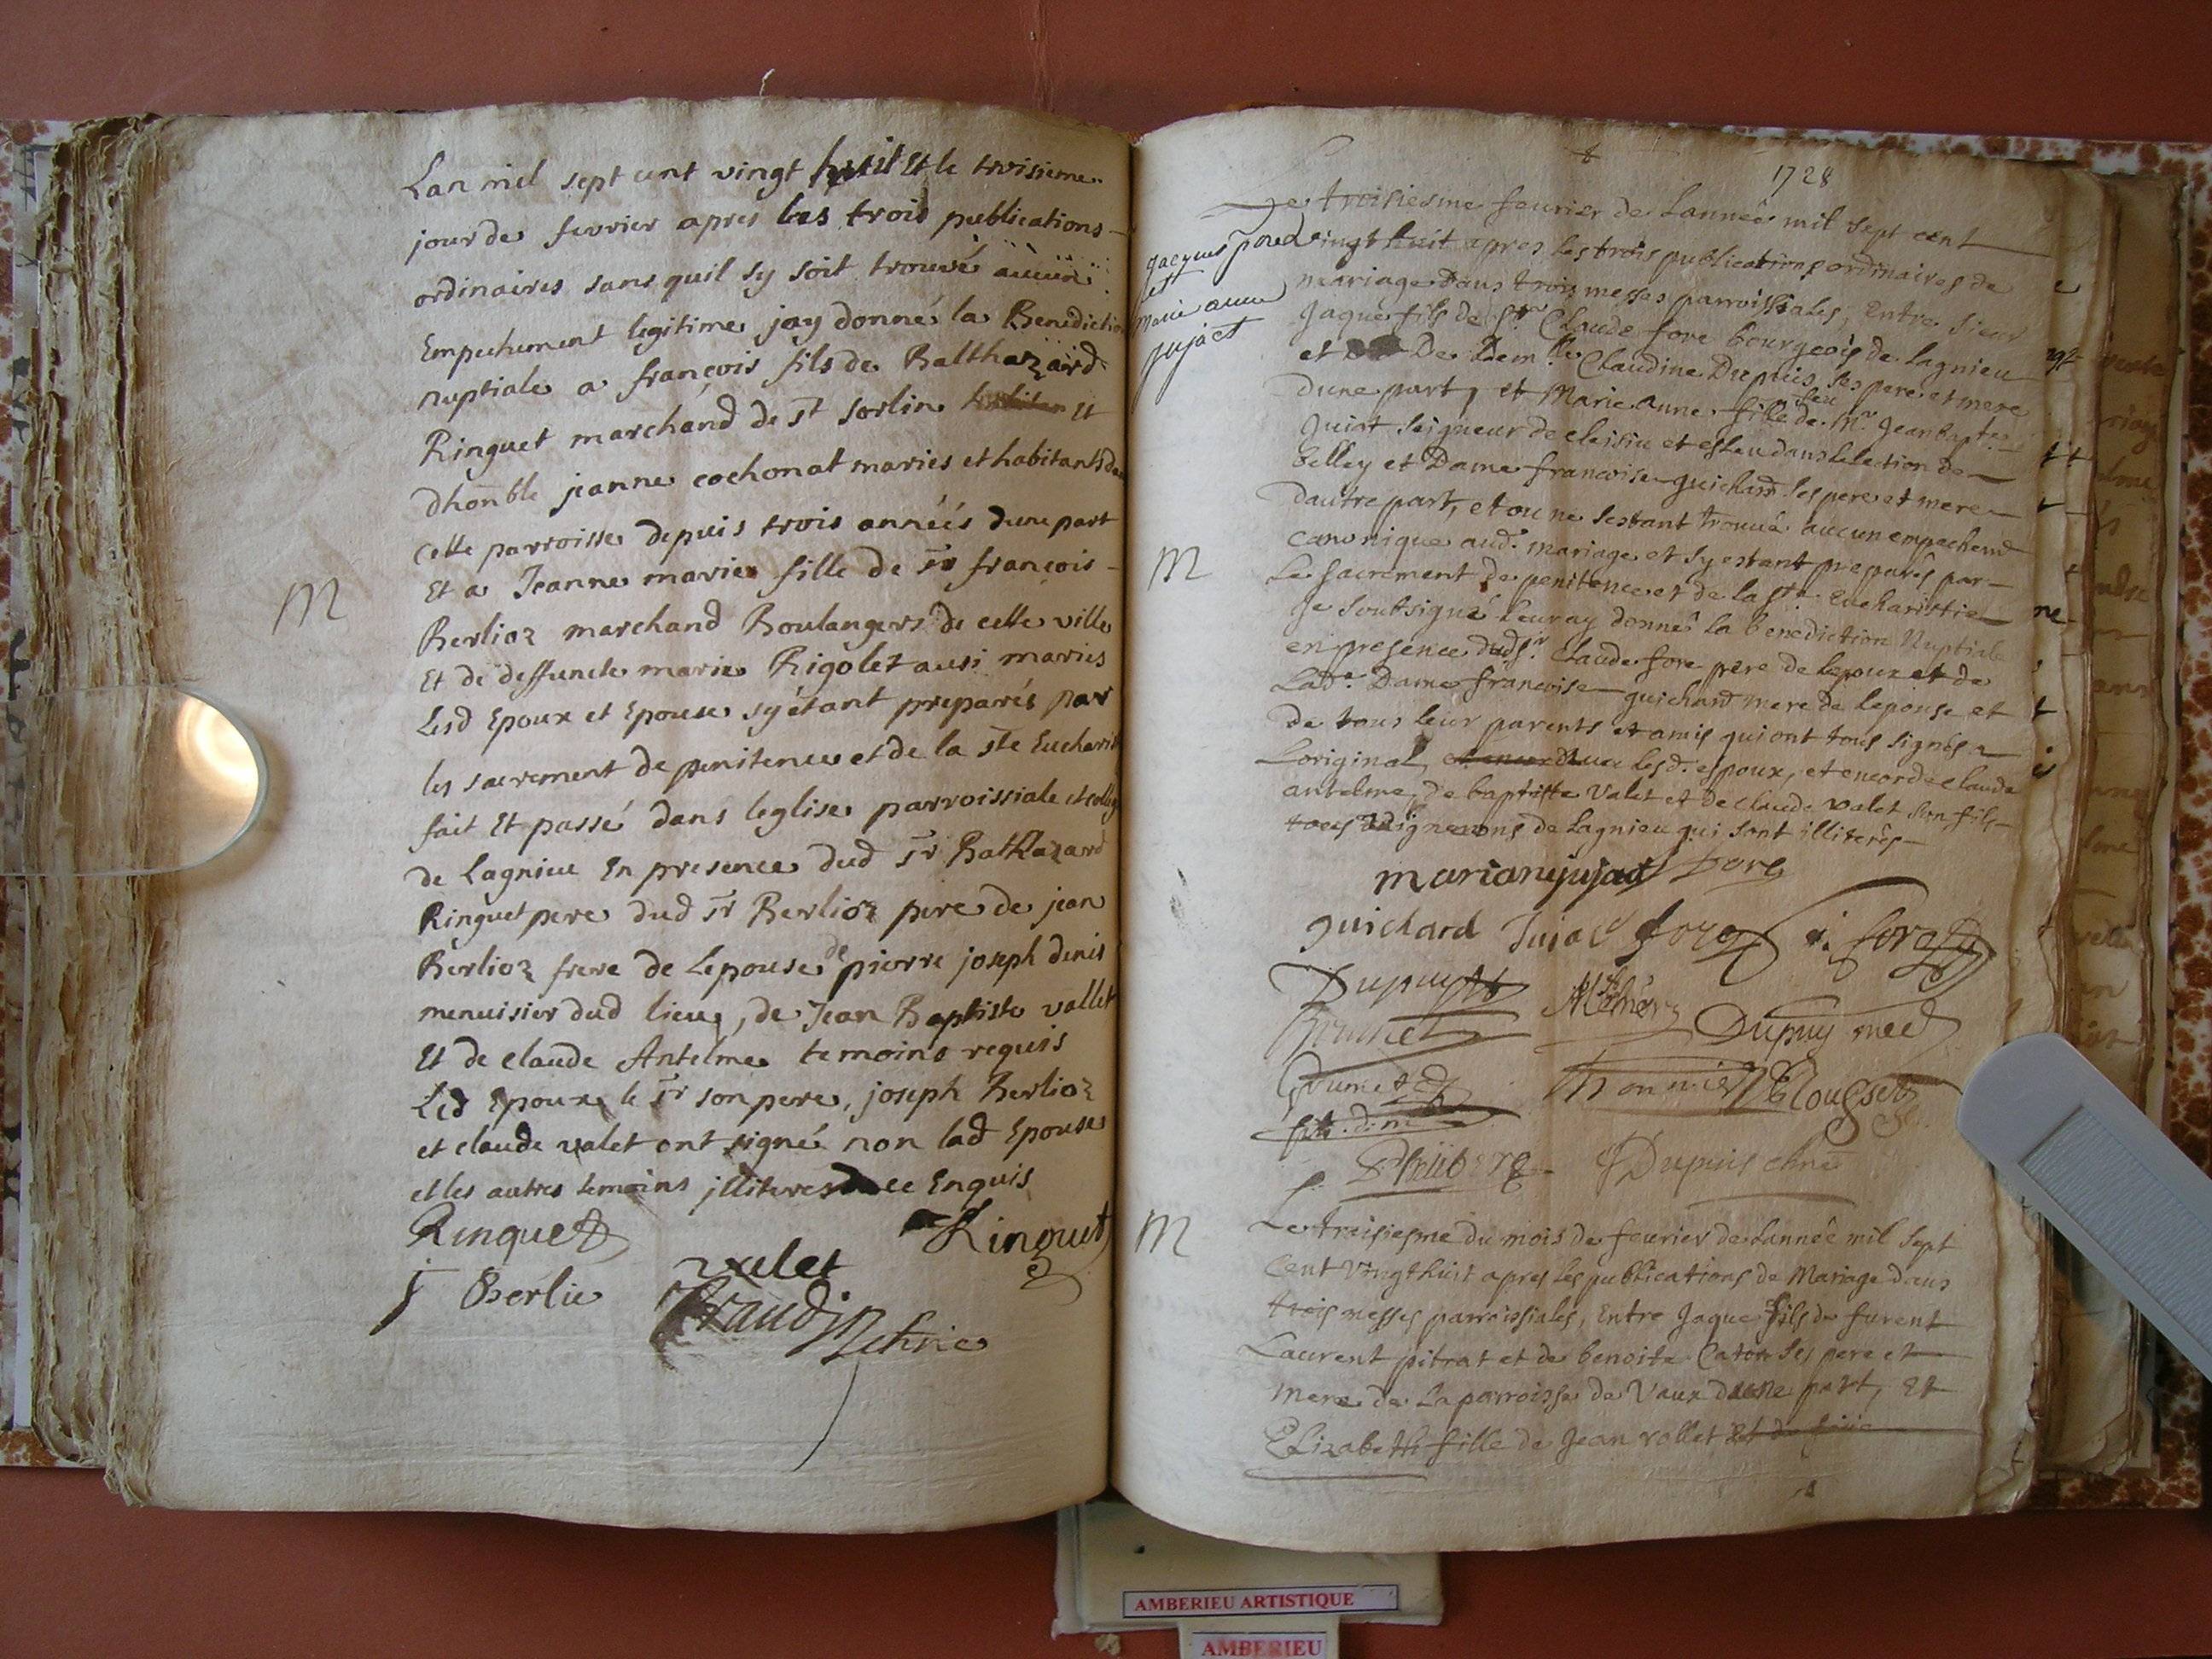 Lan mil sept cent vingt huit Et le troisieme
jour de fevrier apres les trois publications
ordinaires sans quil sy soit trouvé aucun
Empechement legitime jay donné la Benediction
nuptiale a françois fils de Balthazard
Ringuet marchand de st sorlin et
dhonble jeanne cochonat maries et habitants de
cette parroisse depuis trois années dune part
Et a Jeanne marie fille de sr françois
Berlioz marchand Boulangers de cette ville
Et de deffuncte marie Rigolet ausi maries
Lesd Epoux et Epouse sy étant preparés par
les sacrement de penitence et de la ste Eucharis
fait Et passé dans leglise parroissiale et colleg
de Lagnieu En presence dud sr Bathazard
Ringuet pere dud sr Berlioz pere de jean
Berlioz frere de Lepouse de pierre joseph denis
menuisier dud lieu, de Jean Baptiste vallet
Et de claude Antelme temoins requis
Led Epoux le sr son pere, joseph Berlioz
et claude valet ont signé non lad Epouse
et les autres temoins illiteres de ce Enquis
Ringuet
Ringuet
valet
j Berlie
M
1728
Jacques
et
Marie anne
jujact
Le troisiesme feurier de Lanneé mil sept cent
vingt huit apres les trois publications ordinaires de
mariage Dans trois messes parroissiales, Entre sieur
Jaque fils de Sr Claude fore bourgeois de Lagnieu
et De Dem.lle Claudine Dupuis ses pere et mere
dune part, et Marie anne fille de feu Mr Jean bapte
Juiat seigneur de et esleu dans lelection de
belley et Dame francoise guichard ses pere et mere
dautre part, et ou ne sestant trouué aucun empechemt
canonique aud. mariage et sy estant preparés par
Le sacrement de penitence et de la ste Eucharistie
Je soubsigné Leur ay donné la benediction Nuptiale
en presence dud Sr Claude fore pere de lepoux et de
Lade Dame francoise guichard mere de lepouse et
de tous leur parents et amis qui ont tous signés
Loriginal, lesd. espoux, et encor de claude
antelme, de baptiste valet et de claude valet son fils
tous vignerons de Lagnieu qui sont illiterés
M
marianejujact fore
guichard Jujac fore fore
Dupuy
Brunet Dupuy med
Monnier
Philibert Dupuis
M
Le troisiesme du mois de feurier de Lanneé mil sept
Cent Vingt huit apres les publications de Mariage dans
trois messes parroissiales, Entre Jaque fils de furent
Laurent pitrat et de benoite Caton ses pere et
mere de La parroisse de Vaux dune part, et
Elizabeth fille de Jean vollet
AMBERIEU ARTISTIQUE
AMBERIEU